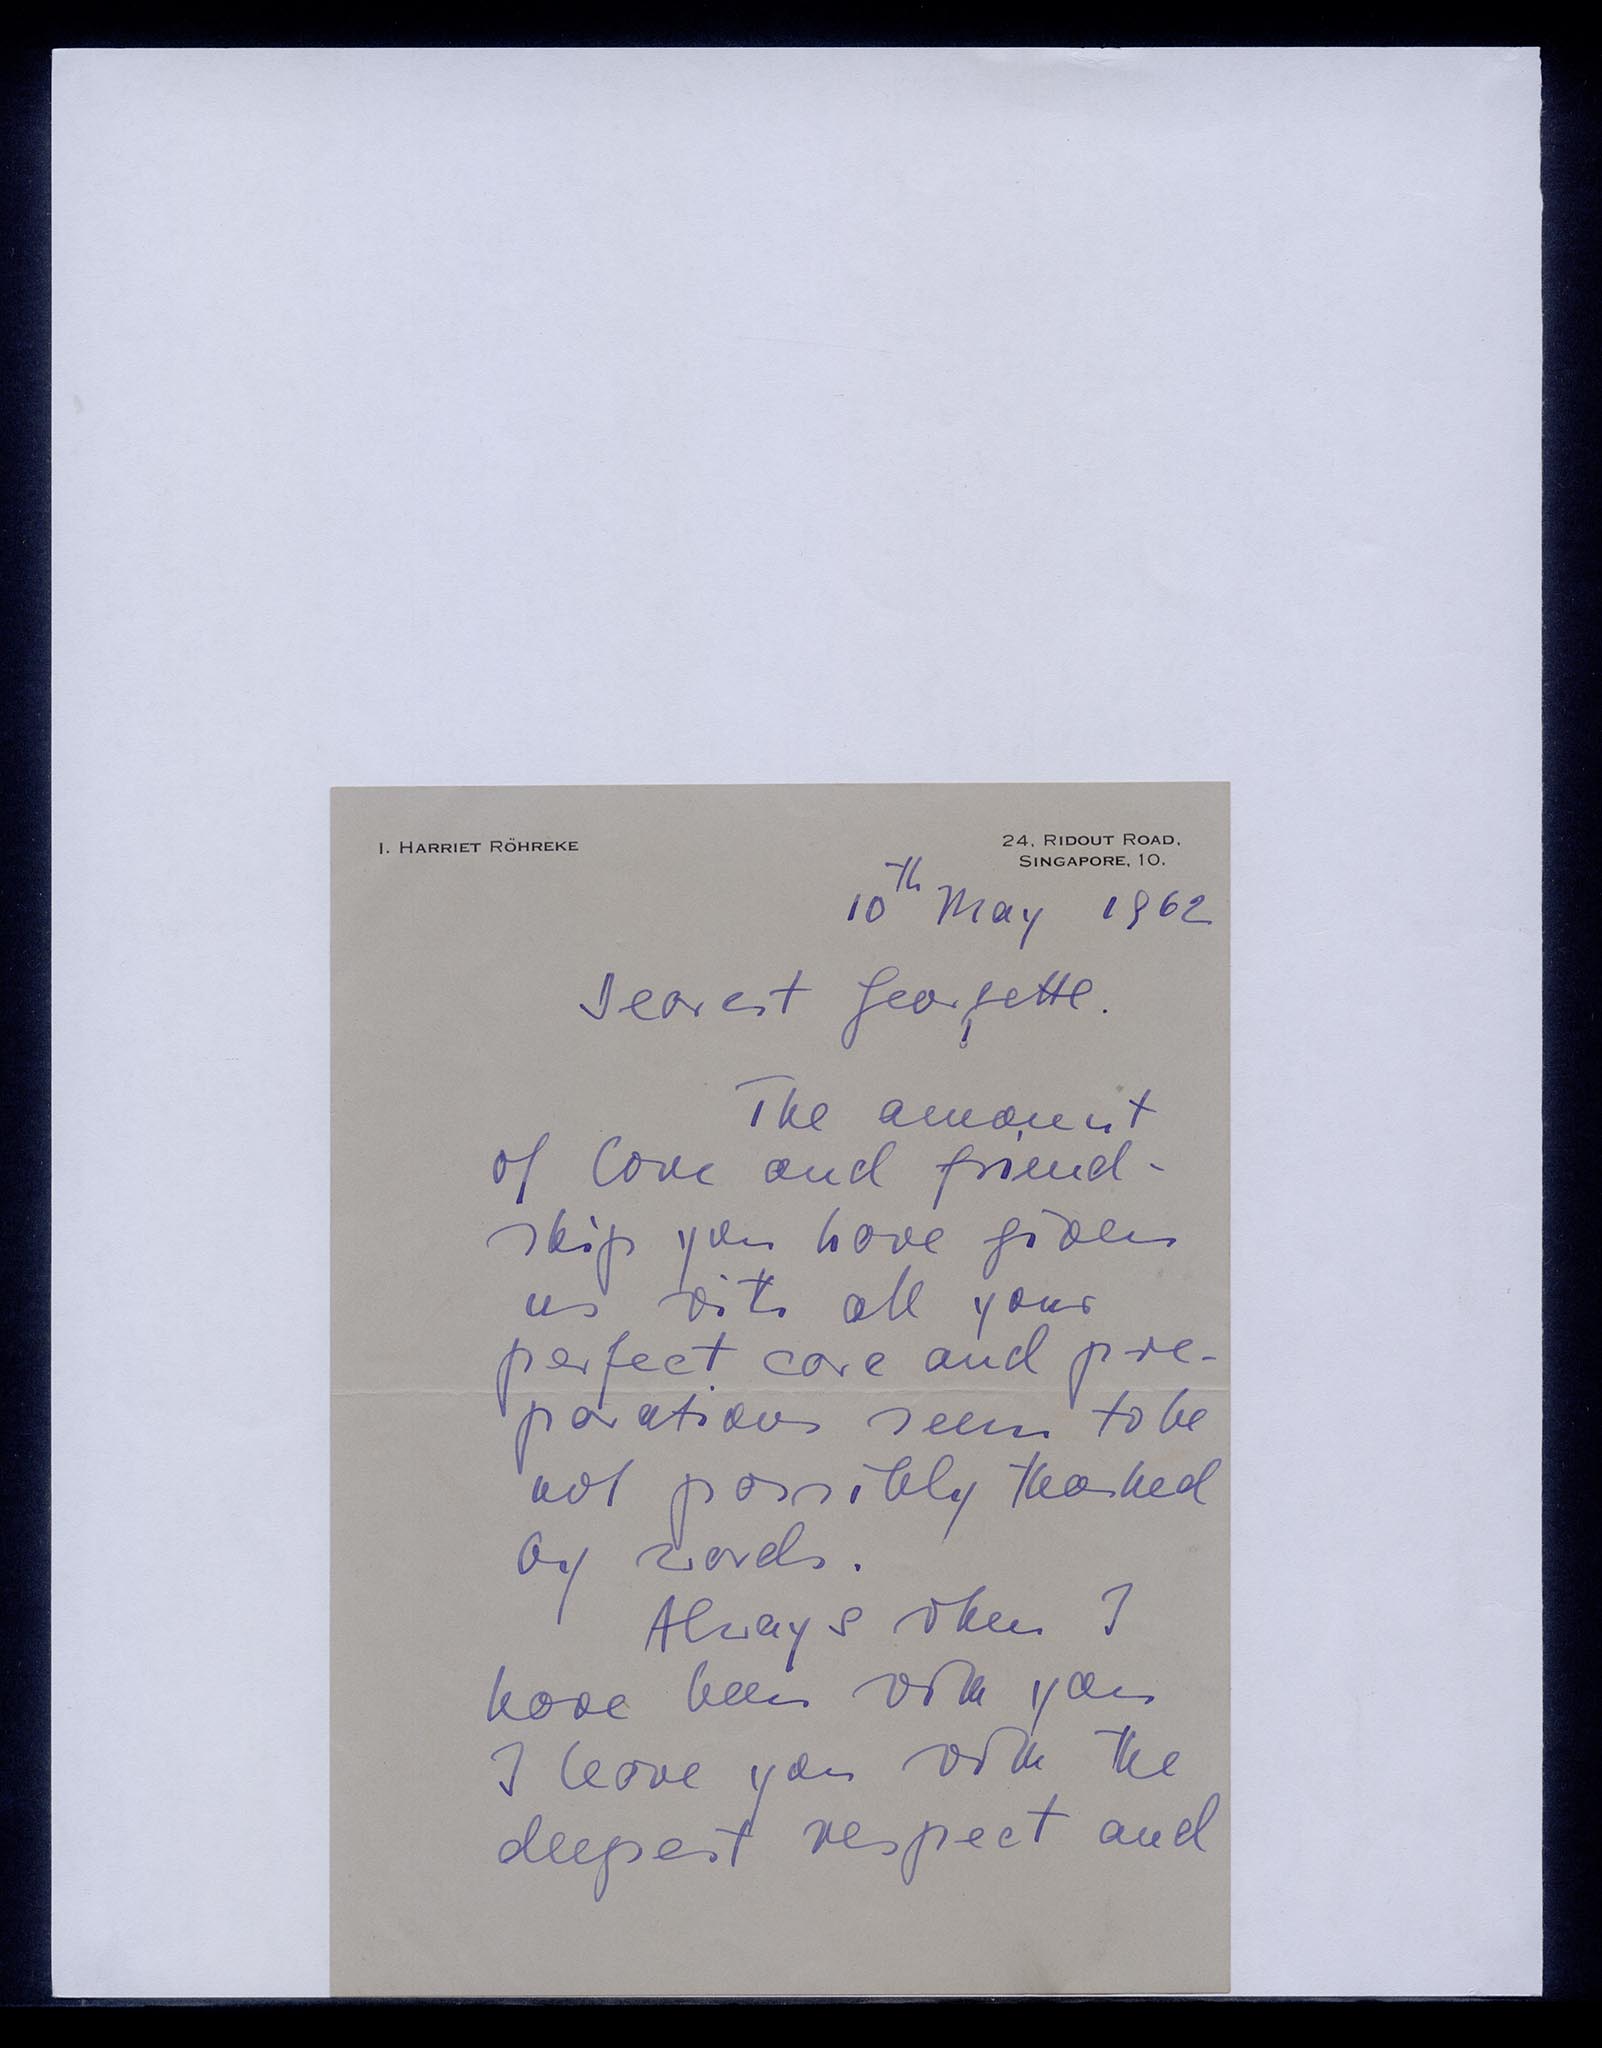 I. HARRIET RÖHREKE
24, RIDOUT ROAD,
SINGAPORE, 10.
10th May 1962
Dearest Georgette.
The amount
of love and friend-
ship you have given
us with all your
perfect care and pre-
parations seem to be
not possibly thanked
by words.
Always when I
have been with you
I leave you with the
deepest respect and